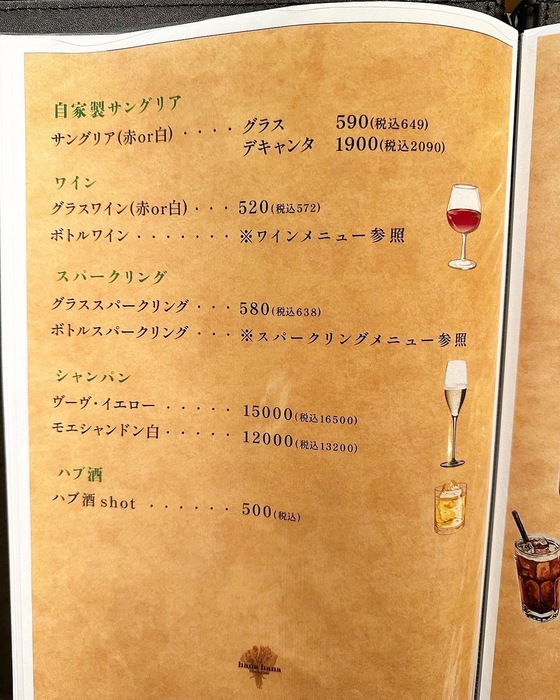 自家製サングリア
サングリア(赤or白)····グラス 590(税込649)
デキャンタ 1900(税込2090)
ワイン
グラスワイン(赤or白)···520(税込572)
ボトルワイン·······※ワインメニュー参照
スパークリング
グラススパークリング···580(税込638)
ボトルスパークリング···※スパークリングメニュー参照
シャンパン
ヴーヴ·イエロー······15000(税込16500)
モエシャンドン白······12000(税込13200)
ハブ酒
ハブ酒shot ······500(税込)
hana hana